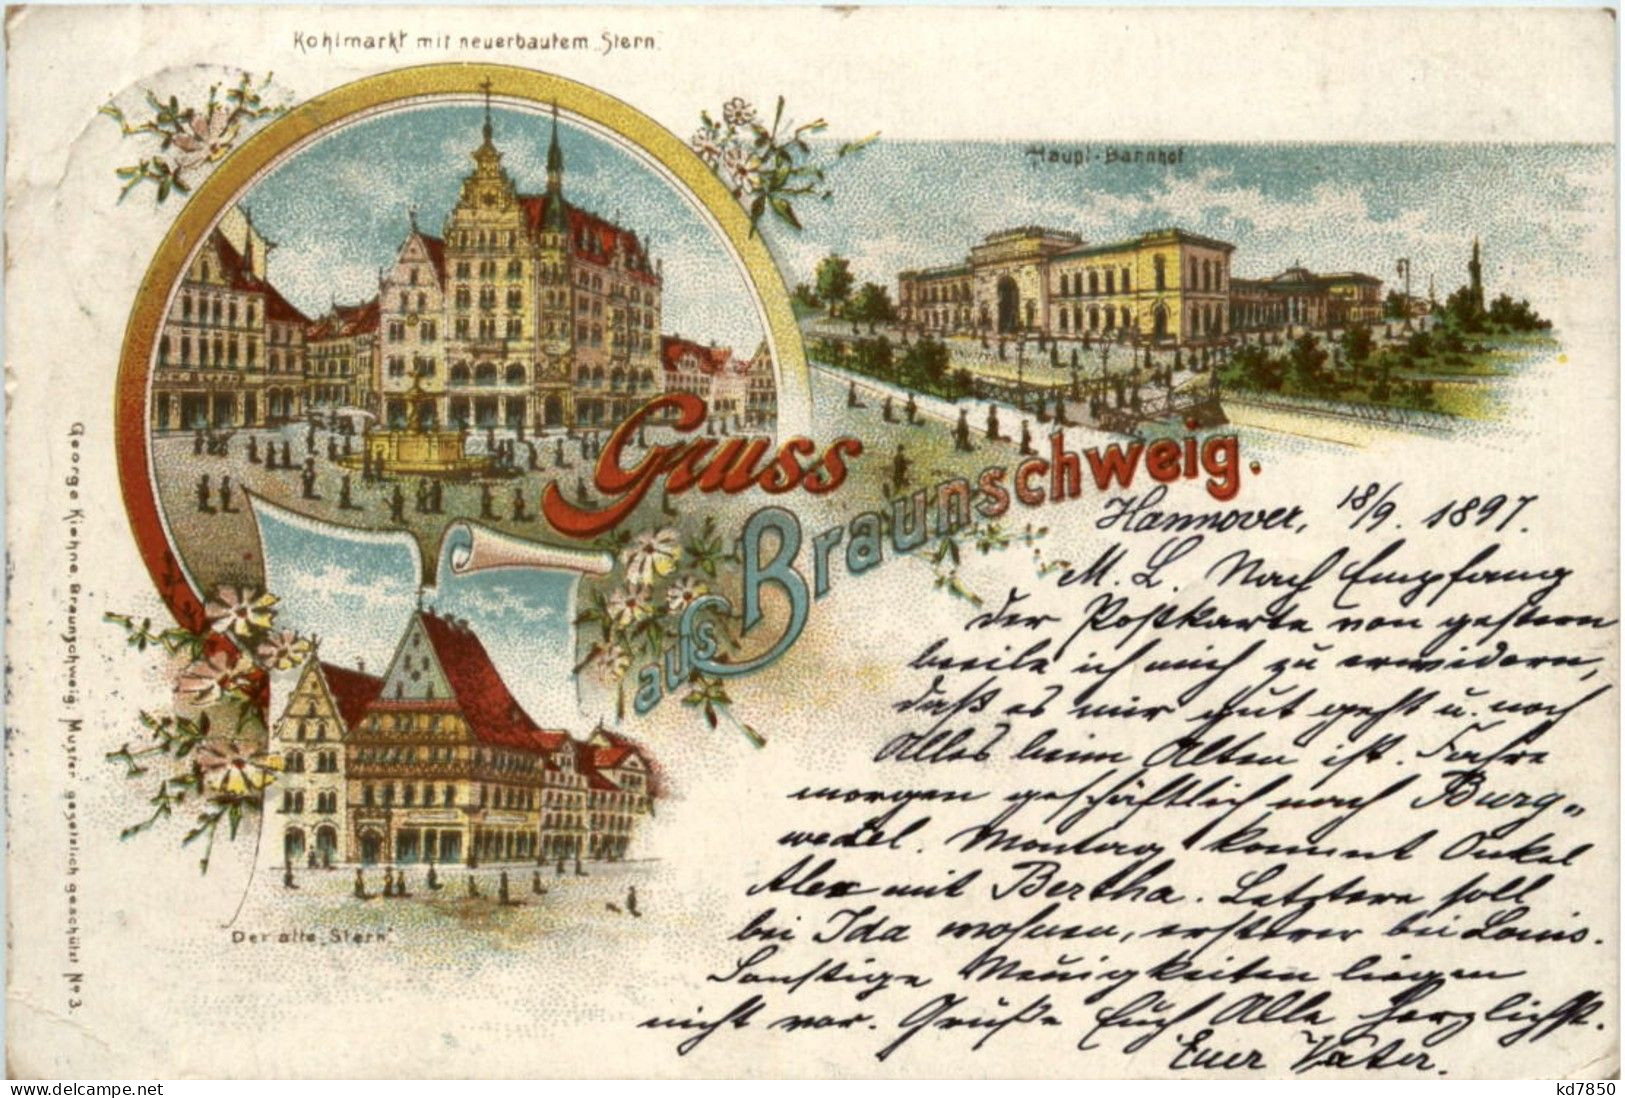 Kohlmarkt mit neuerbautem „Stern“.
Haupt-Bahnhof
Gruss
aus Braunschweig.
Der alte „Stern“.
George Kiehne, Braunschweig, Muster gesetzlich geschützt No 3.
Hannover, 18/9. 1897.
M. L. Nach Empfang
der Postkarte von gestern
beeile ich mich zu erwidern,
daß es mir gut geht u. noch
Alles beim Alten ist. Fahre
morgen geschäftlich nach Burg-
wedel. Montag kommt Onkel
Alex mit Bertha. Letztere soll
bei Ida wohnen, ersterer bei Louis.
Sonstige Neuigkeiten liegen
nicht vor. Grüße Euch Alle herzlichst.
Euer Vater.
kd7850